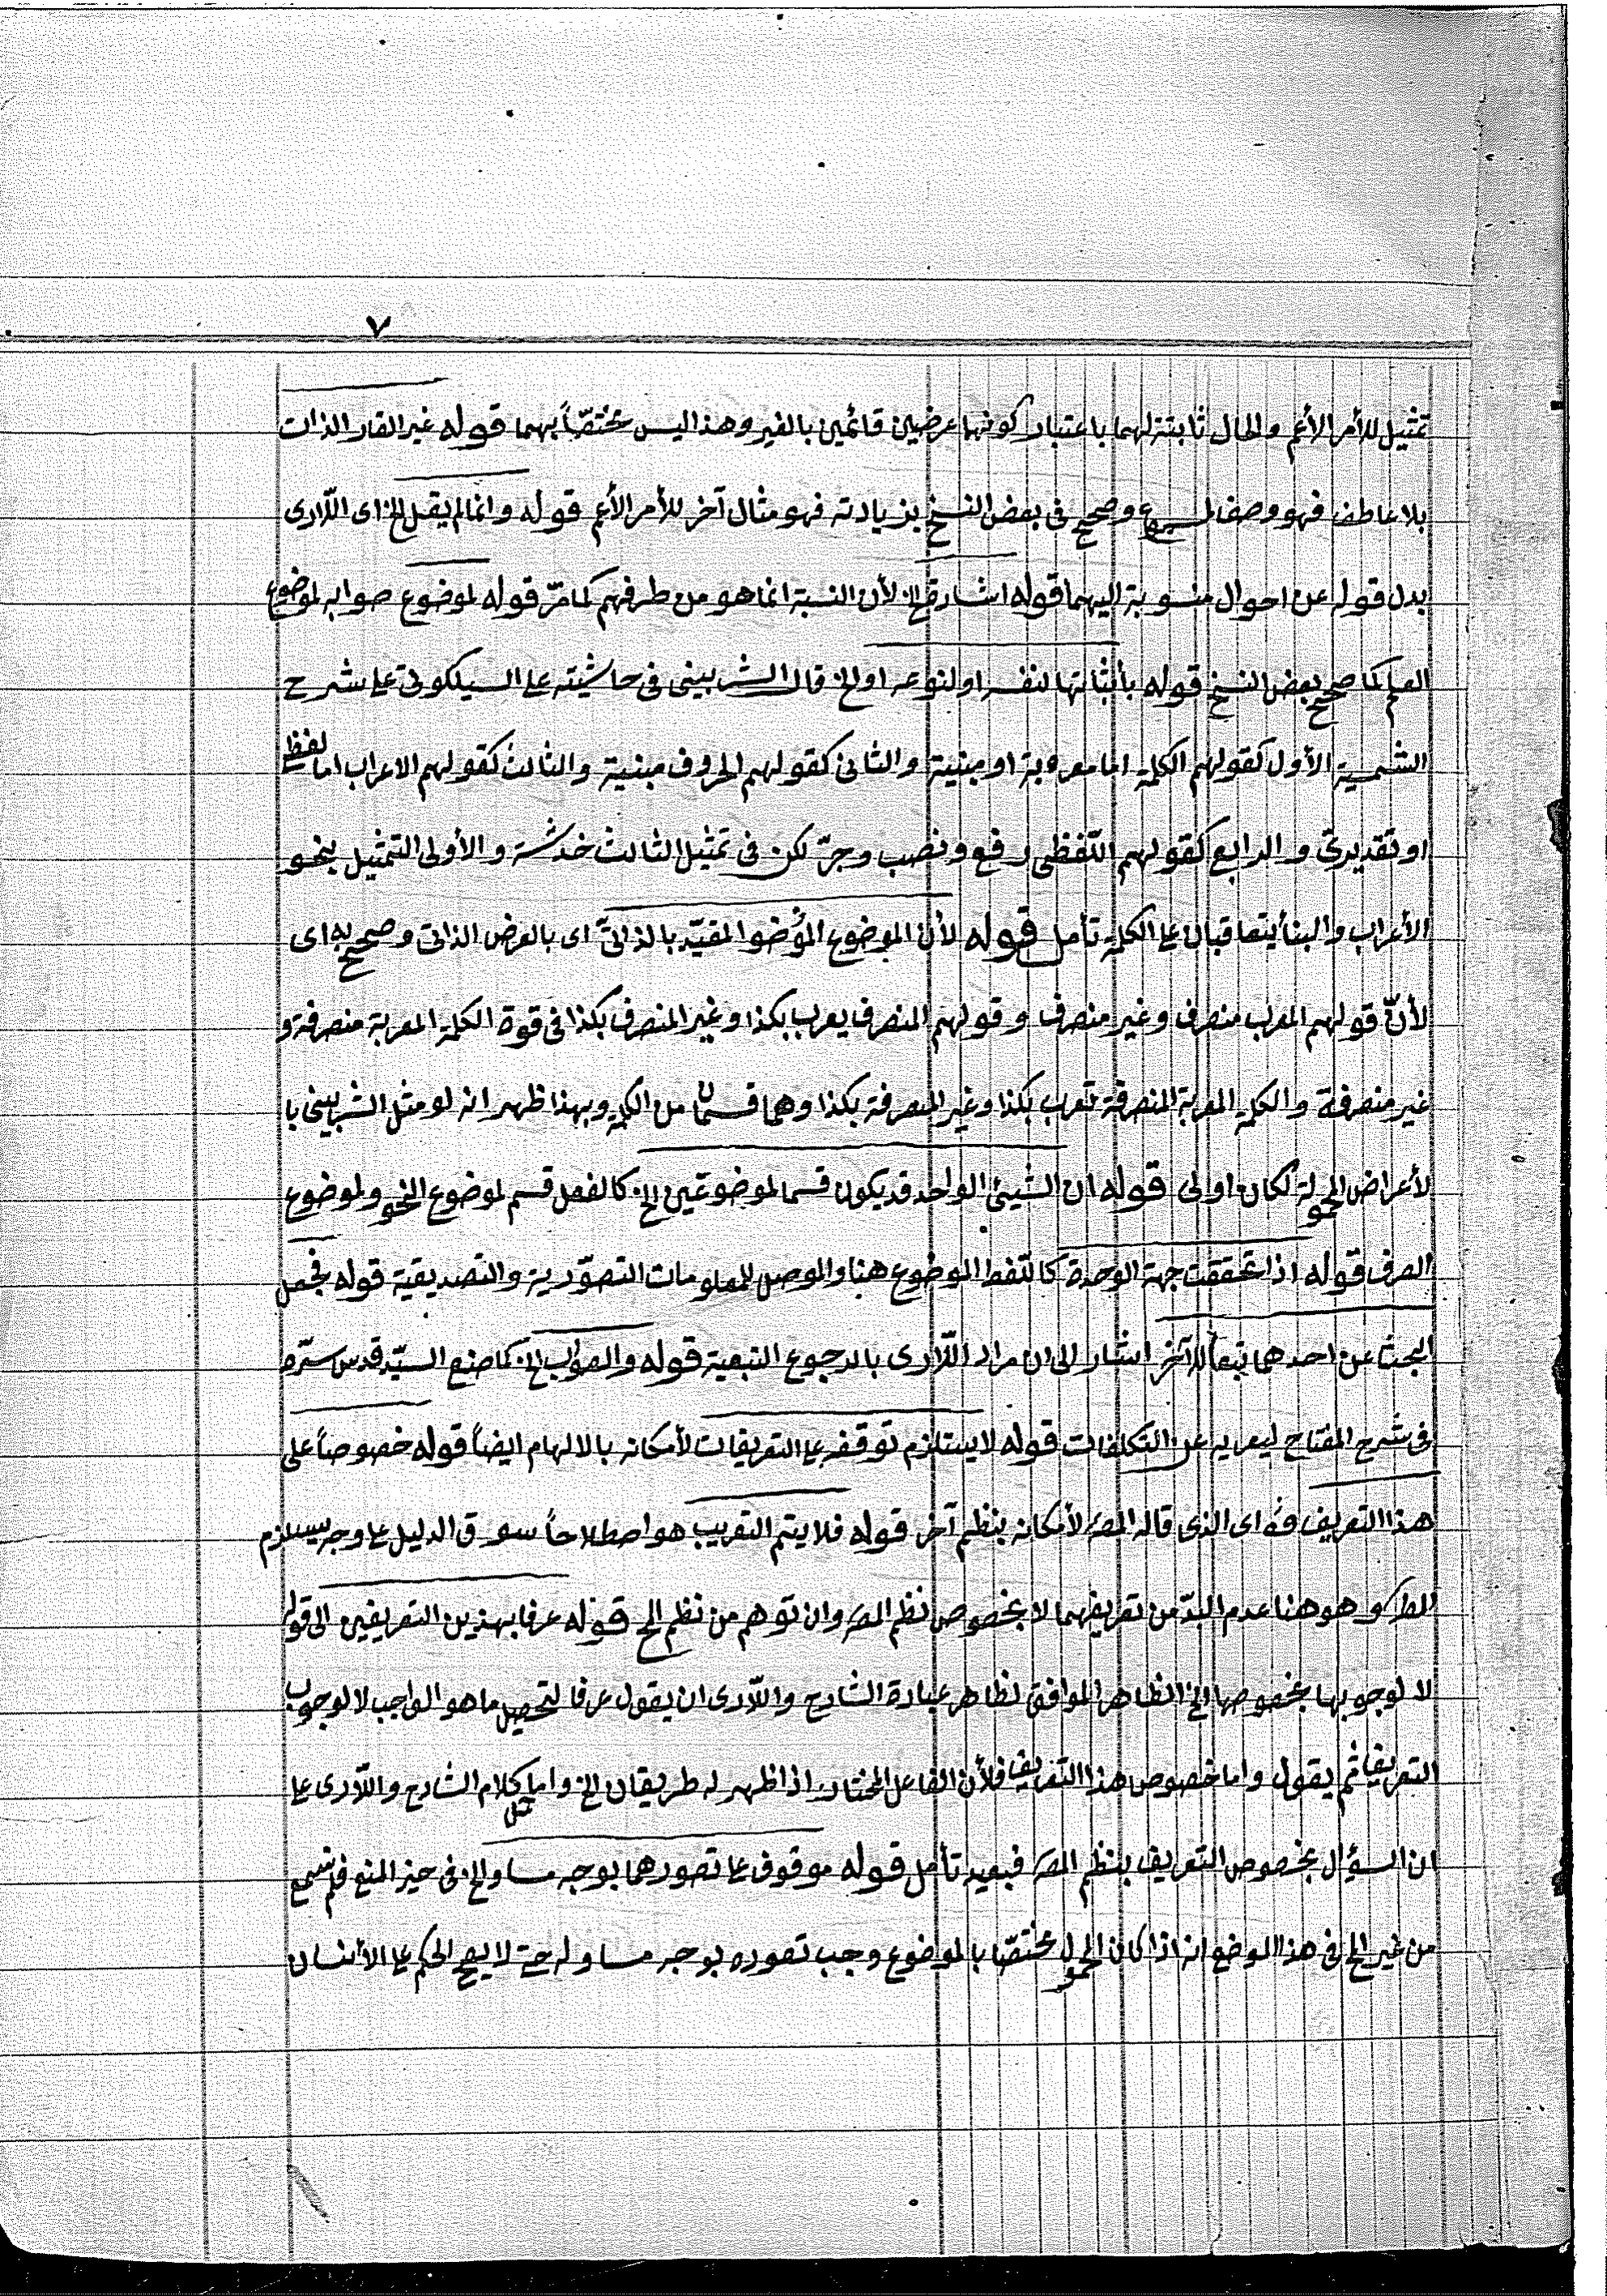 ٧
تمثيل للأمر الأعم والحال ثابتة لهما باعتبار كونها عرضين قائمين بالغير وهذا ليس مختصّاً بهما قوله غير القار الذات
بلا عاطف فهو وصف وصحح فى بعض النسخ بزيادته فهو مثال آخر للأمر الأعم قوله وانما لم يقل الخ اى اللّارى
بدل قوله عن احوال منسوبة اليهما قوله اشارة الخ لأن النسبة انما هو من طرفهم كما مرّ قوله لموضوع صوابه لموضوع
العلم كما صحح بعض النسخ قوله باثباتها لنفسه او لنوعه او الخ قال الشربينى فى حاشيته على السيلكوتى على شرح
الشمسية الأول كقولهم الكلمة اما معربة او مبنية والثانى كقولهم الحروف مبنية والثالث كقولهم الاعراب اما لفظى
او تقديرى والرابع كقولهم اللّفظى رفع ونصب وجرّ لكن فى تمثيل الثالث خدشة والأولى التمثيل بنحو
الأعراب والبناء يتعاقبان على الكلمة تأمل قوله لأن الموضوع المقيّد بالذاتىّ اى بالعرض الذاتى وصحح به اى
لأنّ قولهم المعرب منصرف وغير منصرف وقولهم المنصرف يعرب بكذا وغير المنصرف بكذا فى قوة الكلمة المعربة منصرفة و
غير منصرفة والكلمة المعربة المنصرفة تعرب بكذا وغير المنصرفة بكذا وهما قسمان من الكلمة وبهذا ظهر انه لو مثل الشربينى با
لأعراض المحمولة لكان اولى قوله ان الشيئ الواحد قد يكون قسما لموضوعين الخ كالفعل قسم لموضوع النحو ولموضوع
الصرف قوله اذا تحققت جهة الوحدة كاللّفظ الموضوع هنا والموصل للمعلومات التصوّرية والتصديقية قوله فجعل
البحث عن احدهما تبعاً للآخر اشار الى ان مراد اللّارى بالرجوع التبعية قوله والصواب الخ كما صنع السيّد قدس سرّه
فى شرح المفتاح ليعريه عن التكلفات قوله لا يستلزم توقفه على التعريفات لأمكانه بالالهام ايضاً قوله خصوصاً على
هذا التعريف اى الذى قاله المص لأمكانه بنظم آخر قوله فلا يتم التقريب هو اصطلاحاً سوق الدليل على وجه يستلزم
المط وهو هنا عدم البدّ من تعريفهما لا بخصوص نظم المص وان توهم من نظم الخ قوله عرفا بهذين التعريفين الى قوله
لا لوجوبها بخصوصها الخ الظاهر الموافق لظاهر عبارة الشارح واللّارى ان يقول عرفا لتحصيل ما هو الواجب لا لوجوب
التعريف ثم يقول واما خصوص هذا التعريف فلأن الفاعل المختار اذا ظهر له طريقان الخ واما حمل كلام الشارح واللّارى على
ان السؤال بخصوص التعريف بنظم المص فبعيد تأمل قوله موقوف على تصورهما بوجه مساو الخ فى حيز المنع فلم نسمع
من غير الخ فى هذا الموضع انه اذا كان المحمول مختصّا بالموضوع وجب تصوره بوجه مساو له حتى لا يصح الحكم على الأنسان